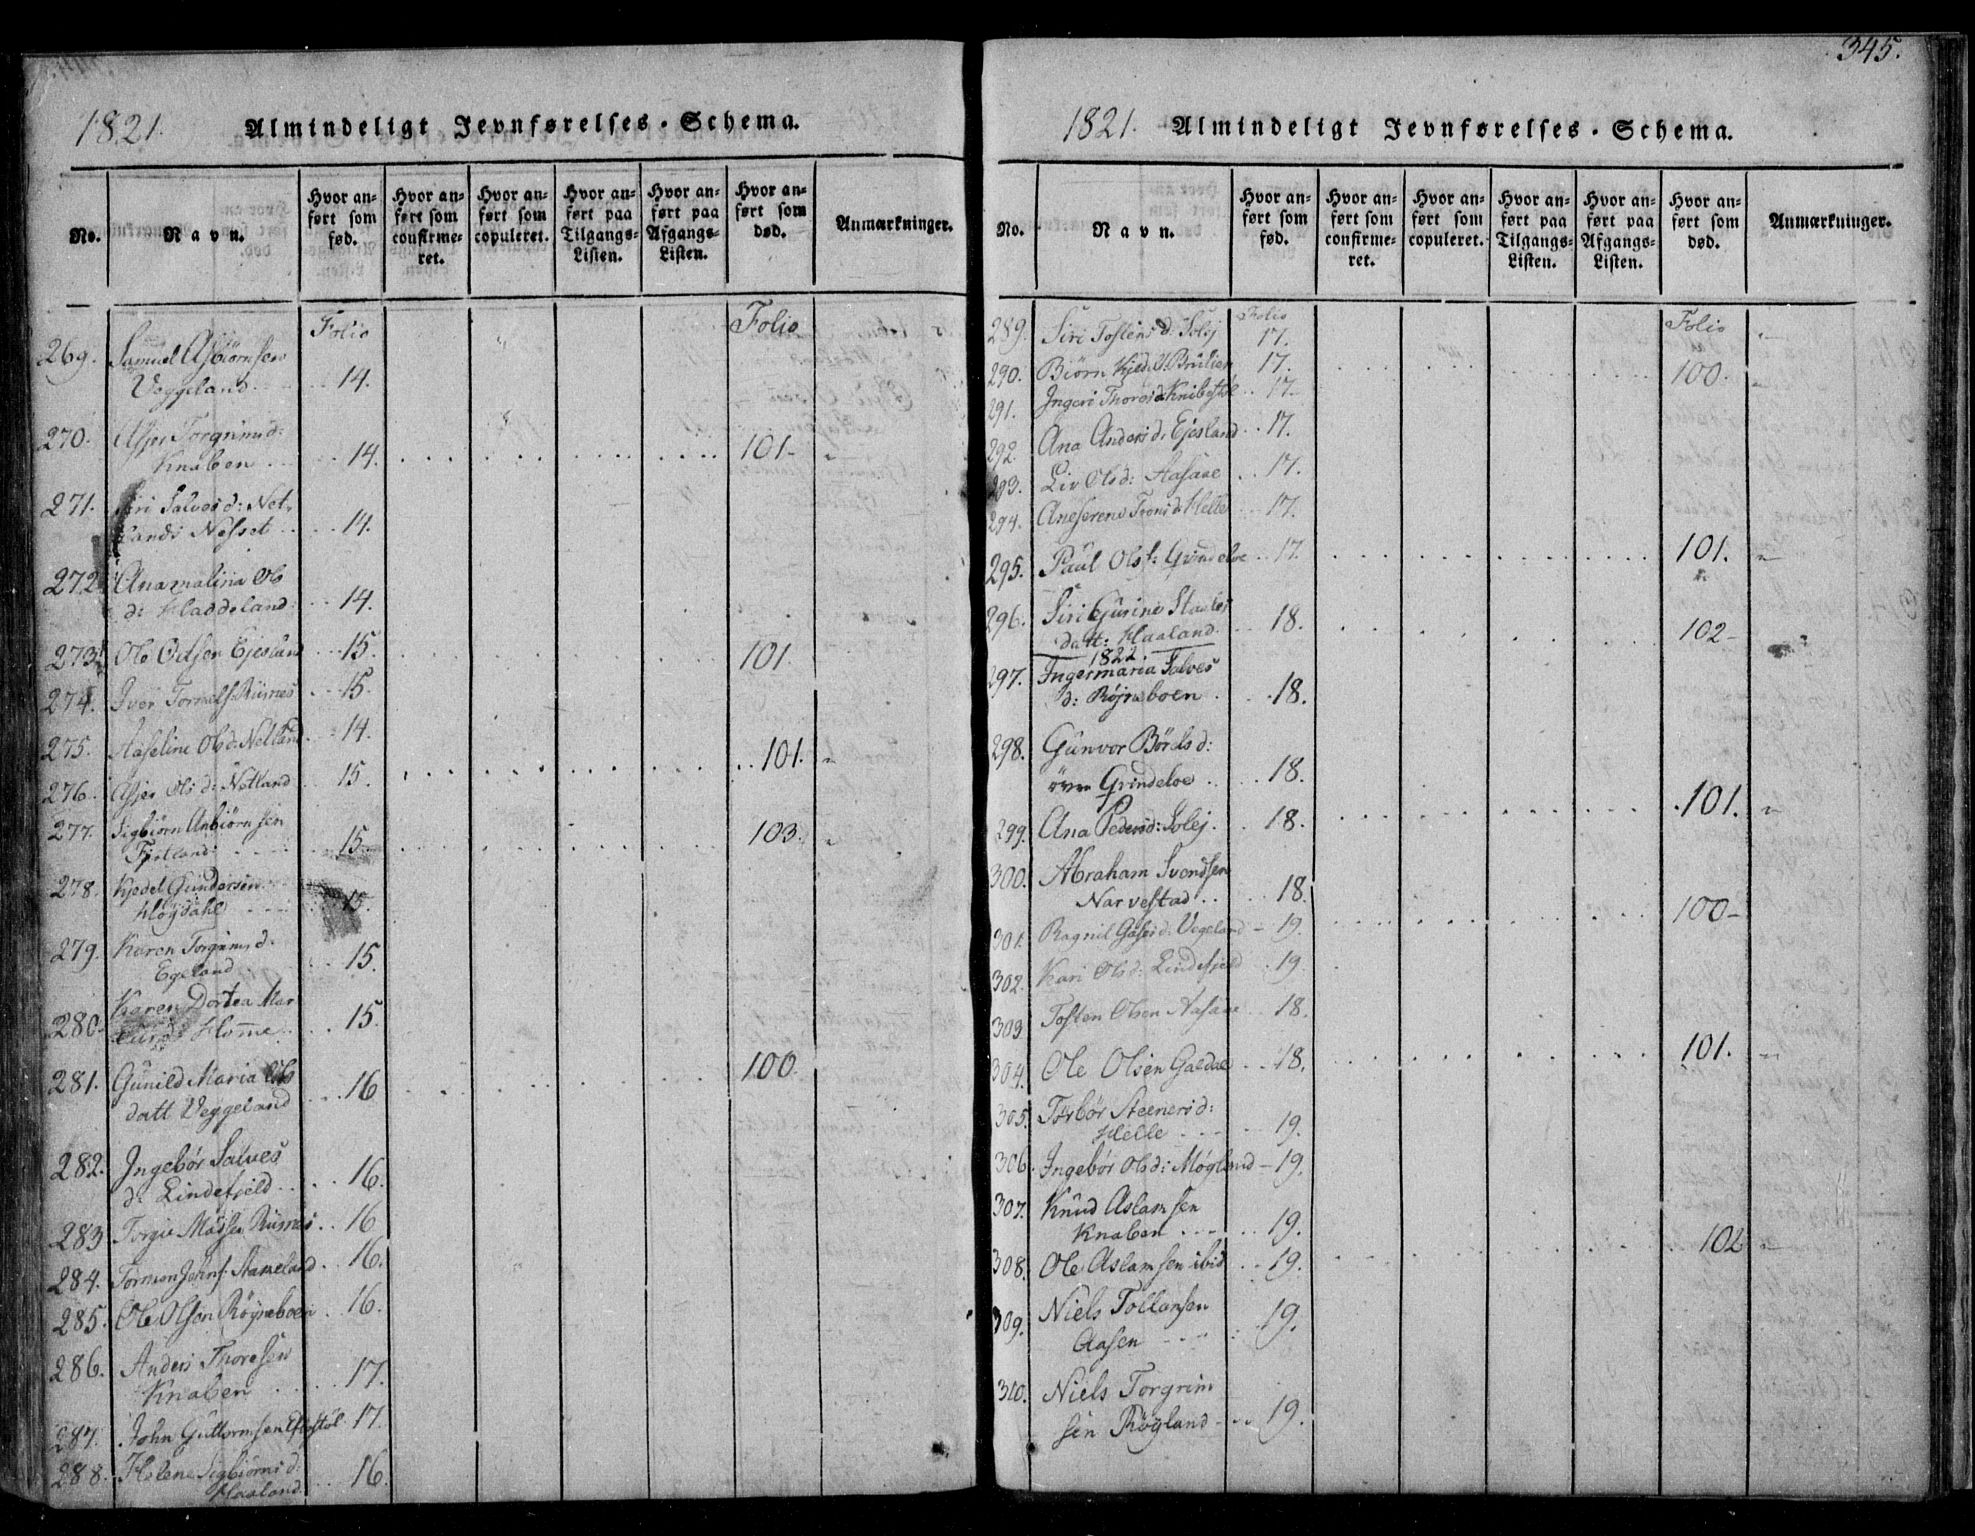 1821. Almindeligt Jevnførelses-Schema.
No. Navn. Hvor anført som fød. Hvor anført som confirmeret. Hvor anført som copuleret. Hvor anført paa Tilgangs-Listen. Hvor anført paa Afgangs-Listen. Hvor anført som død. Anmærkninger.
Folio Folio
269. Samuel Asbiørnsen
Veggeland. 14.
270. Asjer Torgrimsd:
Knaben 14. 101-
271. Siri Salvesd: Net-
lands Nesset 14.
272 Anamalina Ols
d: Haddeland 14.
273 Ole Odsen Ejesland 15. 101.
274. Iver Tormels Risnes 15.
275. Aaseline Olsd: Netland 14. 101.
276. Asjer Olsd: Netland 15.
277. Sigbiørn Anbiørnsen
Fjotland 15. 103.
278. Kjedel Gundersen
Høydahl 15.
279. Karen Torgrimsd.
Egeland 15.
280. Karen Dortea
Homme 15.
281. Gunild Maria Ols
datt Veggeland 16 100.
282. Ingebør Salves
d: Lindefjeld 16.
283 Torgie Madsen Risnes 16
284. Tormon Johns. 16.
285. Ole Olsen Røyneboen 16.
286. Anders Thoresen
Knaben 17.
287. John Guttormsen Eftestøl 17.
288. Helene Sigbiørnsd.
Haaland 16.
345.
1821. Almindeligt Jevnførelses-Schema.
No. Navn. Hvor anført som fød. Hvor anført som confirmeret. Hvor anført som copuleret. Hvor anført paa Tilgangs-Listen. Hvor anført paa Afgangs-Listen. Hvor anført som død. Anmærkninger.
Folio Folio
289. Siri Tostensd: Solej 17.
290. Biørn 17. 100.
291. Ingeri Thoresd: Knibestøl 17.
292 Ana Andersd: Ejesland 17.
293. Liv Olsd: Aasaae 17.
294. Aneserene Tronsd: Helle 17.
295. Paul Ols: Grindeloe 17. 101.
296. Siri Gurine
datt: Haaland. 18. 102-
1822.
297. Ingermaria Salves
d: Røjneboen 18.
298. Gunvor Bördsd:
övre Grindeloe 18.
299. Ana Pedersd: Solej. 18. 101.
300. Abraham Svendsen
Narvestad 18. 100-
301. Ragnil Gasesd: Vegeland 19.
302. Kari Olsd: Lindefjeld 19.
303 Tosten Olsen Aasaae 18.
304. Ole Olsen Galdal 18. 101.
305. Torbør Steenersd:
Helle 19.
306. Ingebør Olsd: Møgland 19.
307. Knud Aslamsen
Knaben 19.
308. Ole Aslamsen ibid 19. 102
309. Niels Tollansen
Aasen 19.
310. Niels Torgrim
sen Røyland 19.